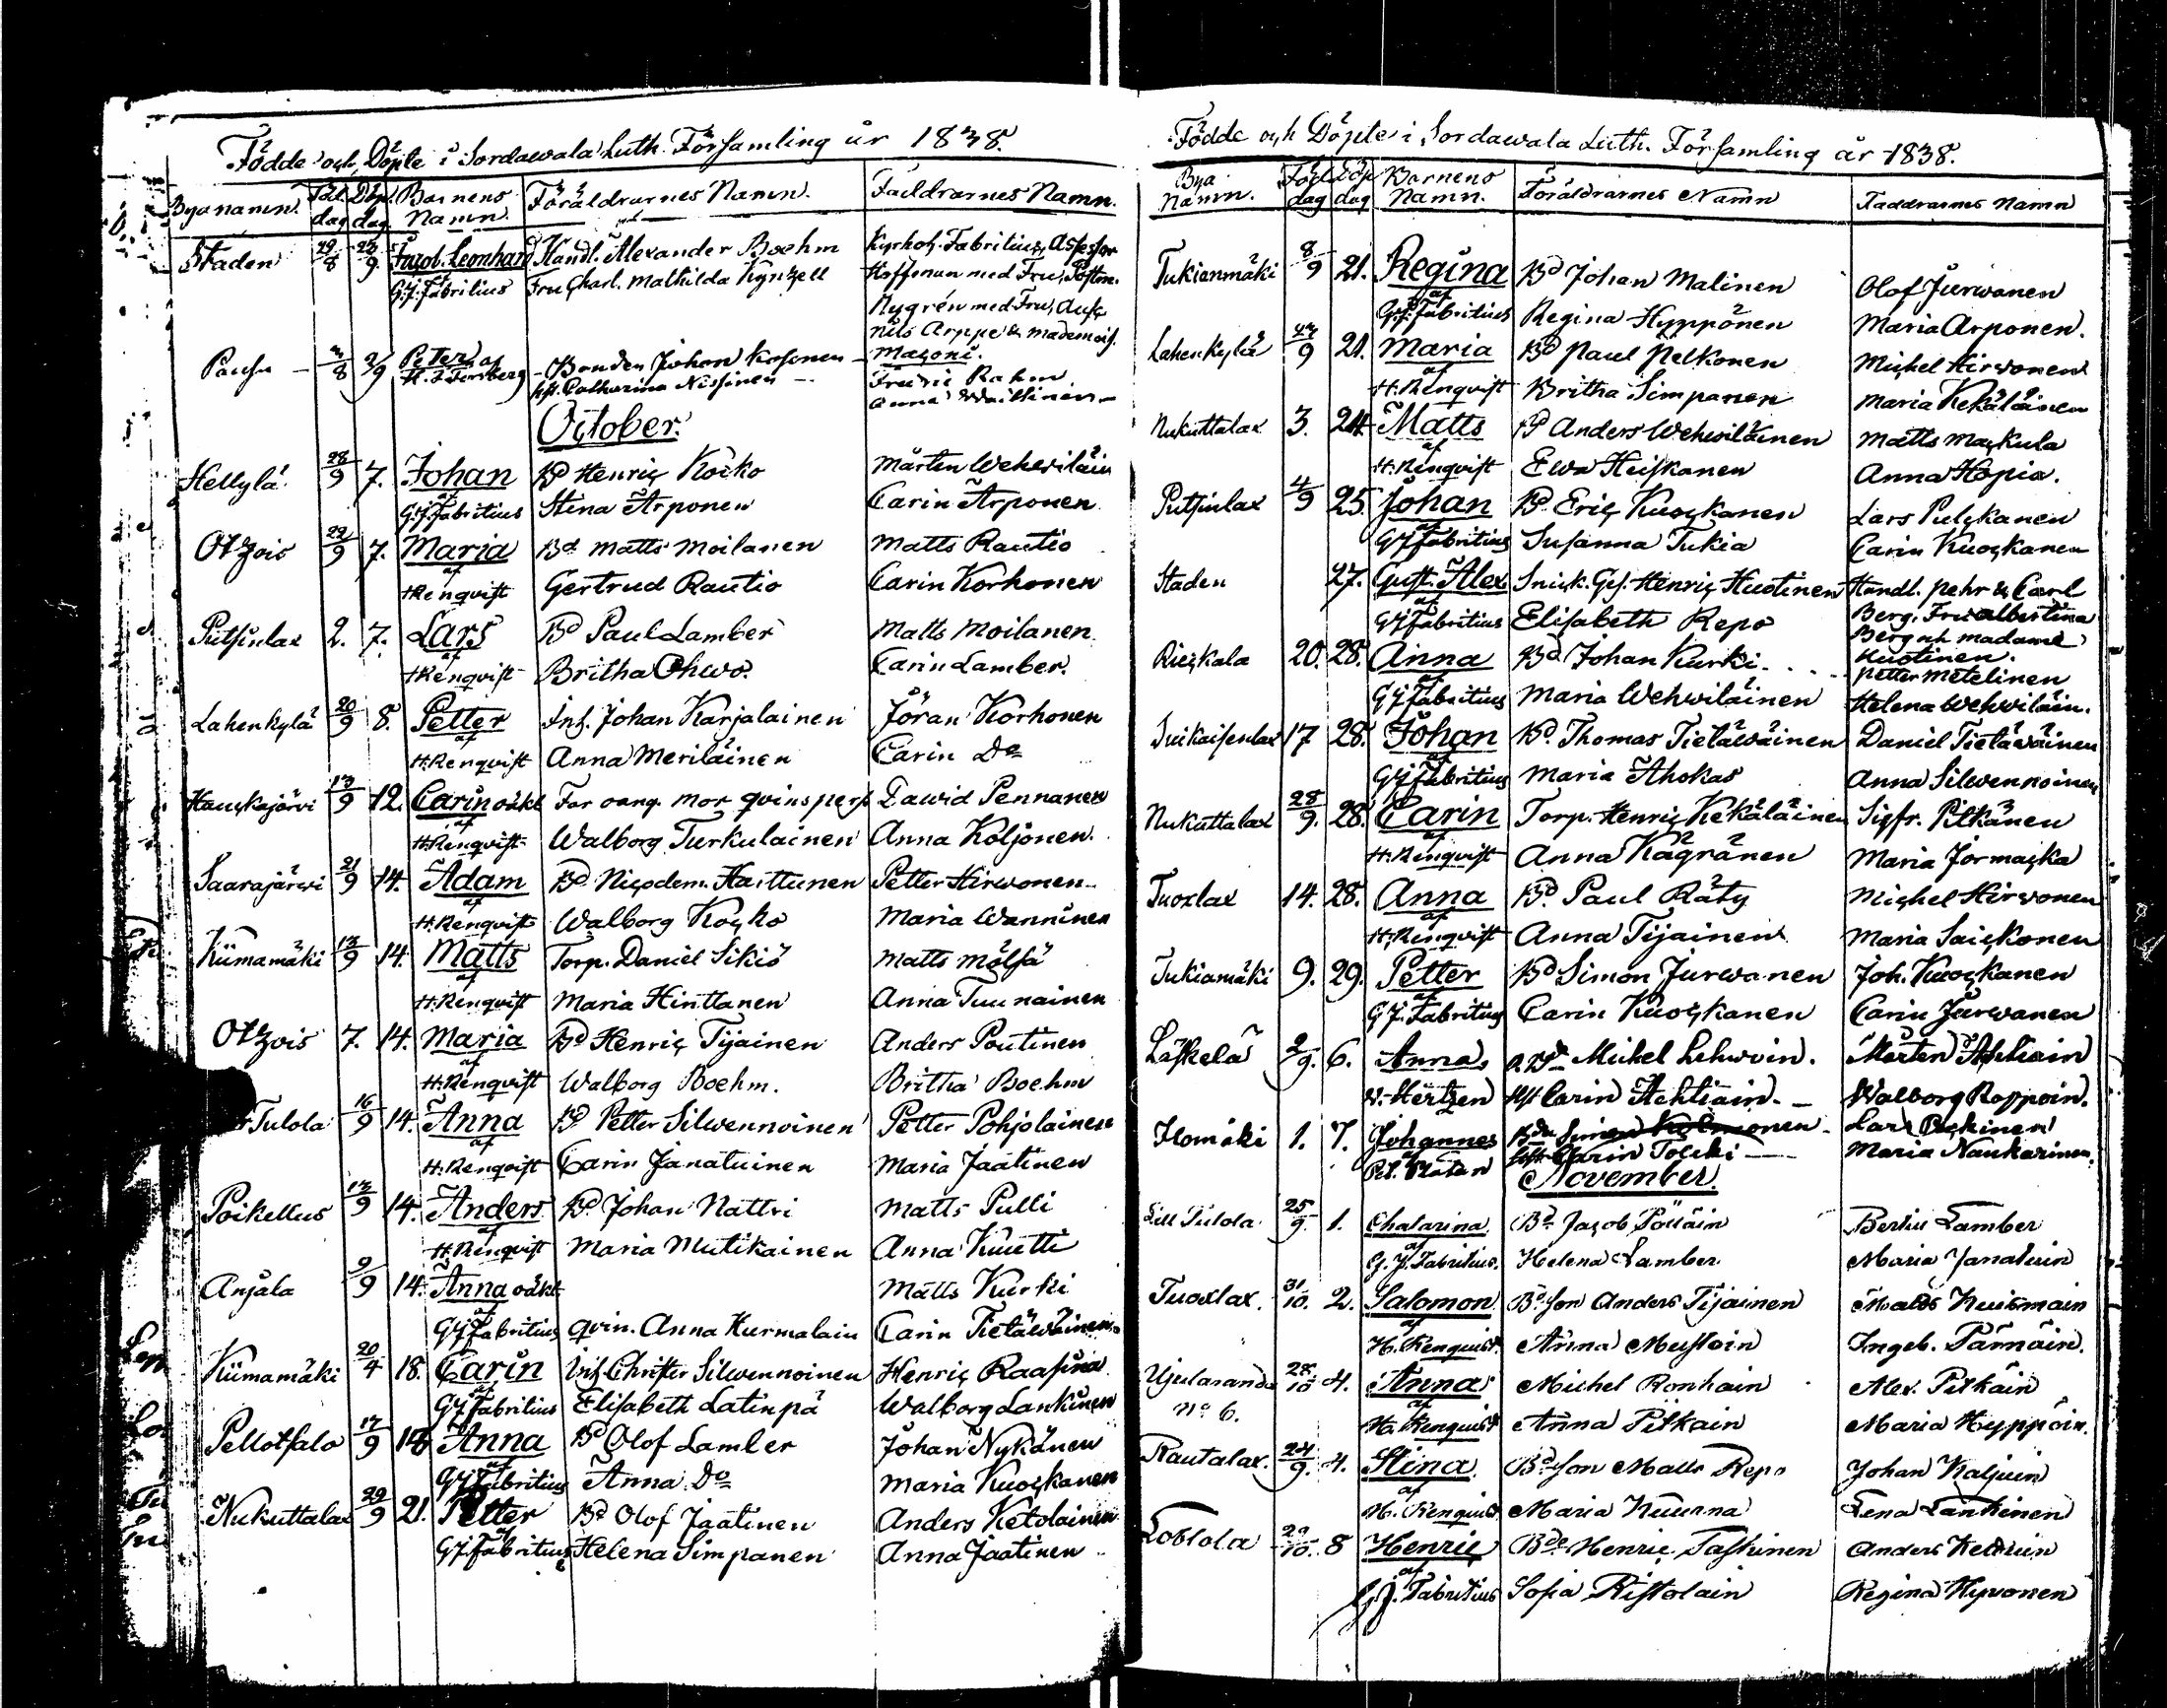 Födde och Döpte i Sordawala Luth. Församling år 1838.
Byanamn. Föd. dag Döp. dag Barnens Namn. Föräldrarnes Namn. Faddrarnes Namn.
Staden 29/8 23/9 Jacob Leonhard Handl. Alexander Boehm Kyrkoh. Fabritius, Assessor
G.J. Fabritius Fru Charl. Mathilda Kyntzell Hoffman med Fru, Postm.
Nygrén med Fru, Ausc.
Nils Arppe & mademois.
Masoni.
8 2/9 Petter af Bonden Johan Kosonen
H. J. Forsberg hst. Catharina Nissinen Anna
October.
Hellylä 28/9 7. Johan Bd Henric Kocko Mårten Wehwiläin
af G.J. Fabritius Stina Arponen Carin Arponen
Otzois 22/9 7. Maria Bd Matts Moilanen Matts Rautio
af H Renqvist Gertrud Rautio Carin Korhonen
Putsinlax 2. 7. Lars Bd Paul Lamber Matts Moilanen
af H Renqvist Britha Ohwo. Carin Lamber.
Lahenkylä 20/9 8. Petter Inh. Johan Karjalainen Jöran Korhonen
af H. Renqvist Anna Meriläinen Carin Do
Hauckajärvi 13/9 12. Carin oäkt Far oang. mor qvinspers. Dawid Pennanen
af H. Renqvist Walborg Turkulainen Anna Koljonen.
Saarajärwi 21/9 14. Adam Bd Nicodem. Harttunen Petter Hirwonen
af H. Renqvist Walborg Kocko Maria Wanninen
Kiimamäki 13/9 14. Matts Torp. Daniel Sikiö Matts Mölsä
af H. Renqvist Maria Hinttanen Anna Tuunainen
Otzois 7. 14. Maria Bd Henric Tijainen Anders Poutinen
af H. Renqvist Walborg Boehm. Britha Boehm
Tulola 16/9 14. Anna Bd Petter Silwennoinen Petter Pohjolainen
af H. Renqvist Carin Janatuinen Maria Jaatinen
Poikellus 13/9 14. Anders Bd Johan Nattri Matts Pulli
af H. Renqvist Maria Mutikainen Anna Kuutti
Anjala 9/9 14. Anna oäkt Matts Kurki
af GJ Fabritius qvin. Anna Hurmalain Carin Tietäwäinen
Kiimamäki 20/4 18. Carin Inh. Christer Silwennoinen Henric Raasina
af GJ Fabritius Elisabeth Latinpä Walborg Lankinen
Pellotsalo 17/9 18 Anna Bd Olof Lamber Johan Nykänen
af GJ Fabritius Anna Do Maria Kuockanen
Nukuttalax 29/9 21. Petter Bd Olof Jaatinen Anders Ketolainen
af GJ. Fabritius Helena Simpanen Anna Jaatinen
Födde och Döpte i Sordawala Luth. Församling år 1838.
Bya Namn. Föd dag Döp dag Barnens Namn. Föräldrarnes Namn Faddrarnes Namn
Tukianmäki 8/9 21. Regina Bd Johan Malinen Olof Jurwanen
af G.J. Fabritius Regina Hyppönen Maria Arponen.
Lahenkylä 9 21. Maria Bd Paul Pelkonen Michel Hirwonen
af H. Renqvist Britha Simpanen Maria Kekäläinen
Nukuttalax 3. 24. Matts Bd Anders Wehwiläinen Matts Mackula
H. Renqvist Ewa Heiskanen Anna Hopia.
Putsinlax 4/9 25. Johan Bd Eric Kuockanen Lars Pulckanen
af GJ Fabritius Susanna Tukia Carin Kuockanen
Staden 27. Gust. Alex Snick. Ges. Henric Huotinen Handl. Pehr & Carl
af GJ Fabritius Elisabeth Repo Berg, Fru Albertina
Berg och madame
Huotinen.
Rieckala 20. 28. Anna Bd Johan Kurki Petter Metelinen
af GJ Fabritius Maria Wehwiläinen Helena Wehwiläin.
Suikaisenlax 17 28. Johan Bd Thomas Tietäwäinen Daniel Tietäwäinen
af GJ Fabritius Maria Ahokas Anna Silwennoinen
Nukuttalax 28/9. 28. Carin Torp. Henric Kekäläinen Sigfr. Pitkänen
af H. Renqvist Anna Kägränen Maria Jormacka
Tuoxlax 14. 28. Anna Bd. Paul Räty Michel Hirwonen
af H. Renqvist Anna Tijainen Maria Saickonen
Tukiamäki 9. 29. Petter Bd Simon Jurwanen Joh. Kuockanen
af G.J. Fabritius Carin Kuockanen Carin Jurwanen
Läskelä 2/9. 6. Anna Michel Lehwoin. Mårten Ahtiain
v. Hertzen hst Carin Ahtiain Walborg Roppoin.
Ilomäki 1. 7. Johannes Bdn Simon Kolmonen Lars
af Carin Maria Naukarinen.
November.
Lill Tulola 25/9. 1. Chatarina Bd Jacob Pöllain Bertil Lamber
af G. J. Fabritius. Helena Lamber. Maria Janatuin
Tuoxlax. 31/10. 2. Salomon Bd. Son Anders Tijainen Matts Huismain
af H. Renquist. Anna Mustoin Ingeb. Pärnäin.
28/10 4. Anna Michel Ronkain Alex. Pitkäin
No 6. af H. Renquist Anna Pitkain Maria Hyppöin.
Rautalax. 24/9. 4. Stina. Bd Son Matts Repo Johan Kaljuin
af H. Renquist Maria Kuurna Lena Lankinen
29/10. 8 Henric Bde Henric Taskinen Anders
af G.J. Fabritius Sofia Ristolain Regina Hyvonen